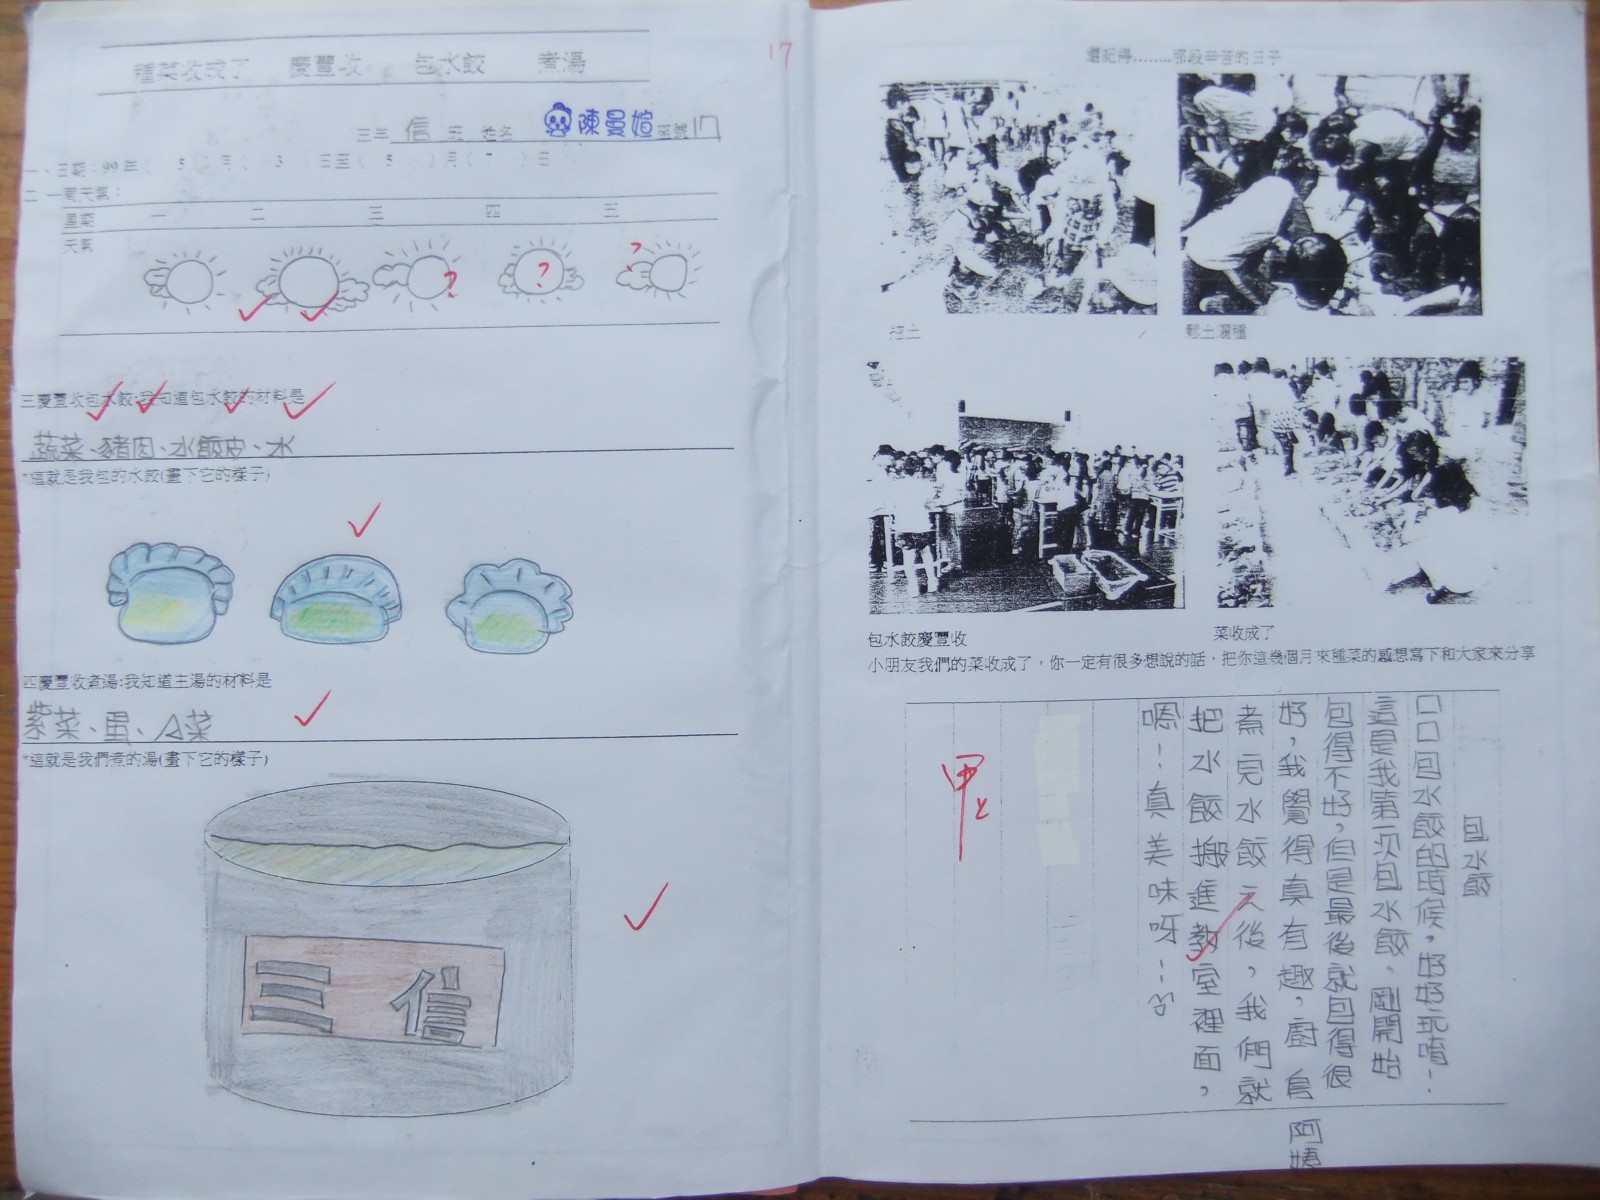 種菜收成了 慶豐收 包水餃 煮湯
17
信 姓名 17
二 一周天氣：
星期 一 二 三 四 五
天氣
? ? ?
三慶豐收包水餃:我知道包水餃的材料是
蔬菜、豬肉、水餃皮、水
*這就是我包的水餃(畫下它的樣子)
四慶豐收煮湯:我知道主湯的材料是
紫菜、蛋、A菜
*這就是我們煮的湯(畫下它的樣子)
三信
還記得........那段辛苦的日子
鬆土灑種
包水餃慶豐收
菜收成了
小朋友我們的菜收成了，你一定有很多想說的話，把你這幾個月來種菜的感想寫下和大家來分享
包水餃
口口包水餃的時候，好好玩唷！
這是我第一次包水餃，剛開始
包得不好，但是最後就包得很
好，我覺得真有趣，廚房阿姨
煮完水餃之後，我們就
把水餃搬進教室裡面，
嗯！真美味呀！
甲上